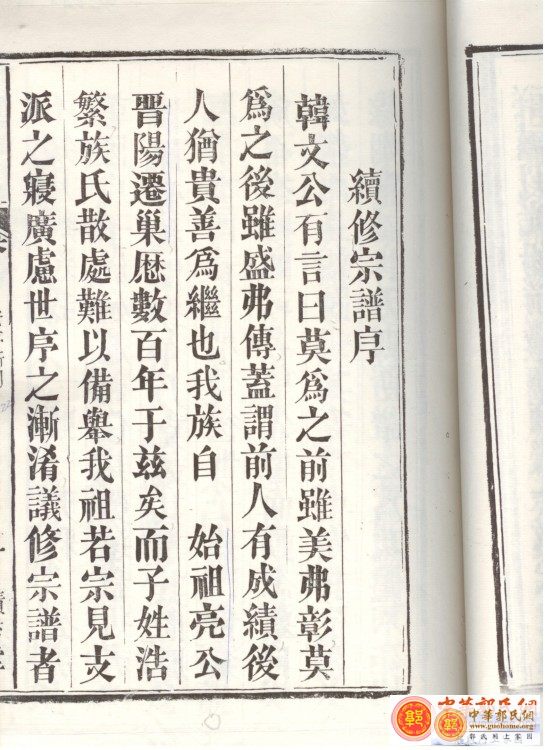 續修宗譜序
韓文公有言曰莫爲之前雖美弗彰莫
爲之後雖盛弗傳蓋謂前人有成績後
人猶貴善爲繼也我族自 始祖亮公
晋陽遷巢歴數百年于茲矣而子姓浩
繁族氏散處難以備舉我祖若宗見支
派之寢廣慮世序之漸淆議修宗譜者
中華郭氏網
www.guohome.com
郭氏網上家園